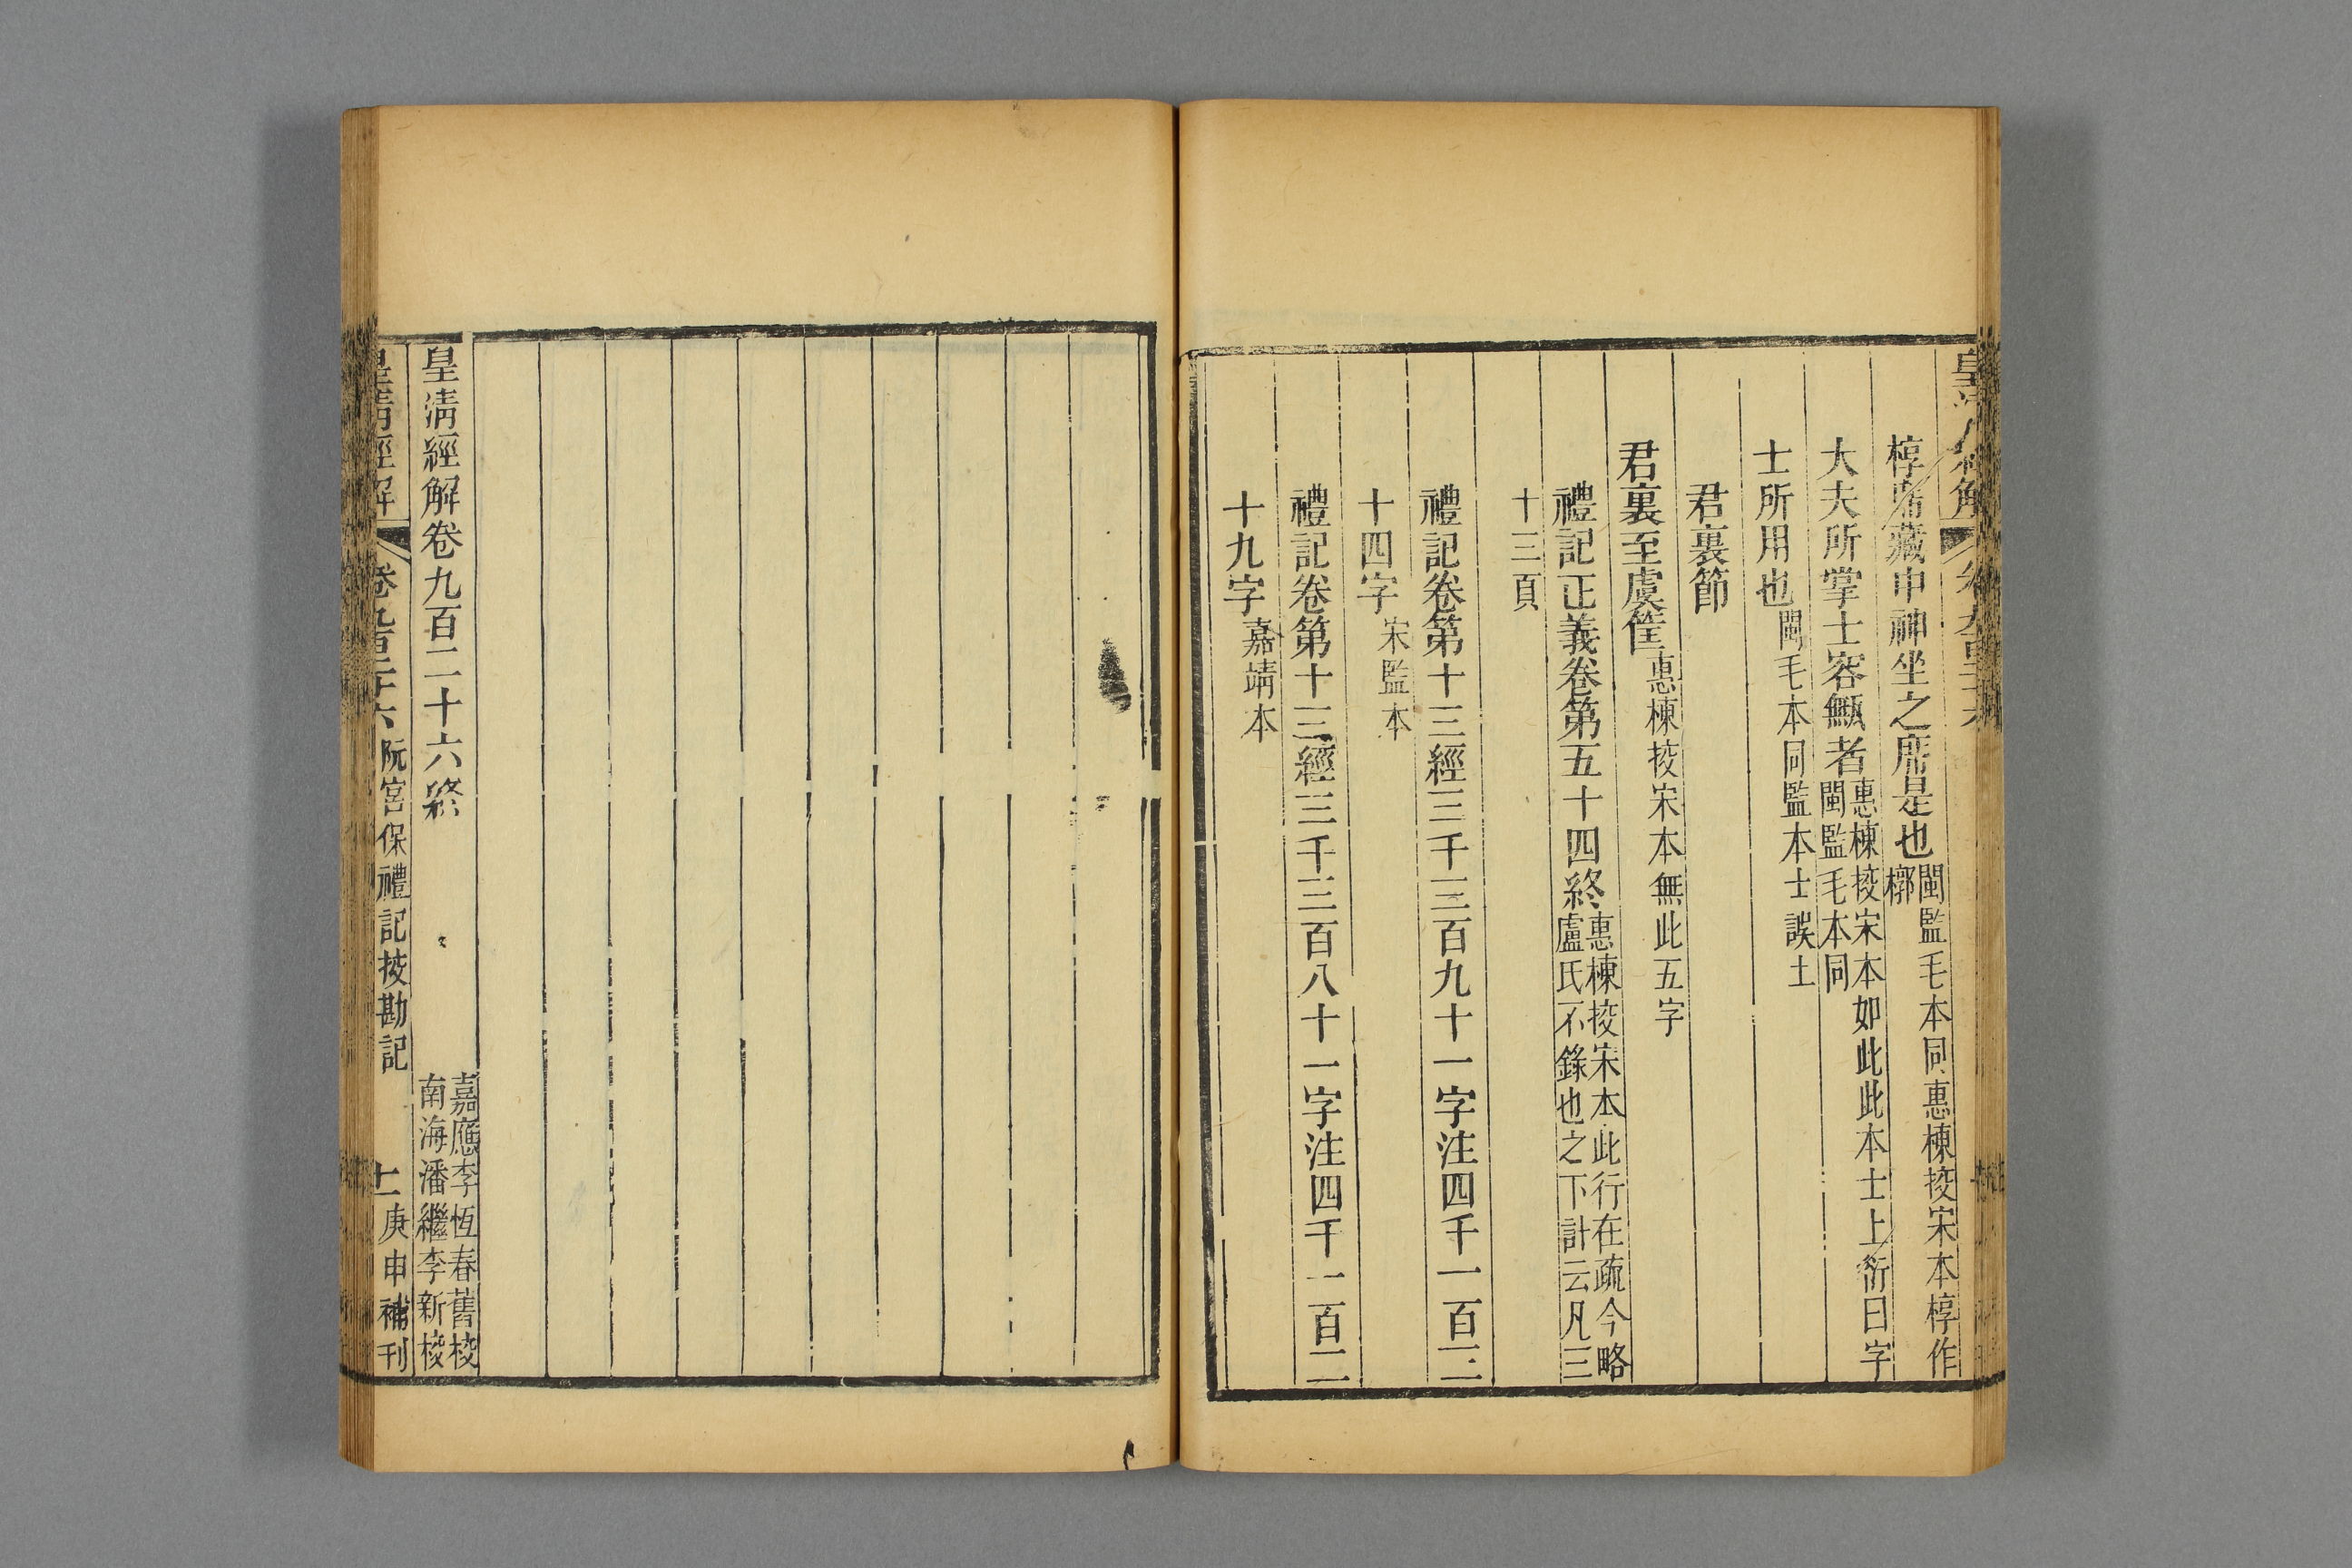 椁席藏中神坐之席是也閩監毛本同惠棟挍宋本椁作槨
大夫所掌士容甒者惠棟挍宋本如此此本士上衍曰字閩監毛本同
士所用也閩毛本同監本士誤土
君裏節
君裏至虞筐惠棟挍宋本無此五字
禮記正義卷第五十四終惠棟挍宋本此行在疏今略盧氏不錄也之下計云凡三
十三頁
禮記卷第十三經三千三百九十一字注四千一百三
十四字宋監本
禮記卷第十三經三千三百八十一字注四千一百二
十九字嘉靖本
皇清經解卷九百二十六終
嘉應李恆春舊挍
南海潘繼李新挍
皇清經解 卷九百二十六 阮宮保禮記挍勘記 十 庚申補刊